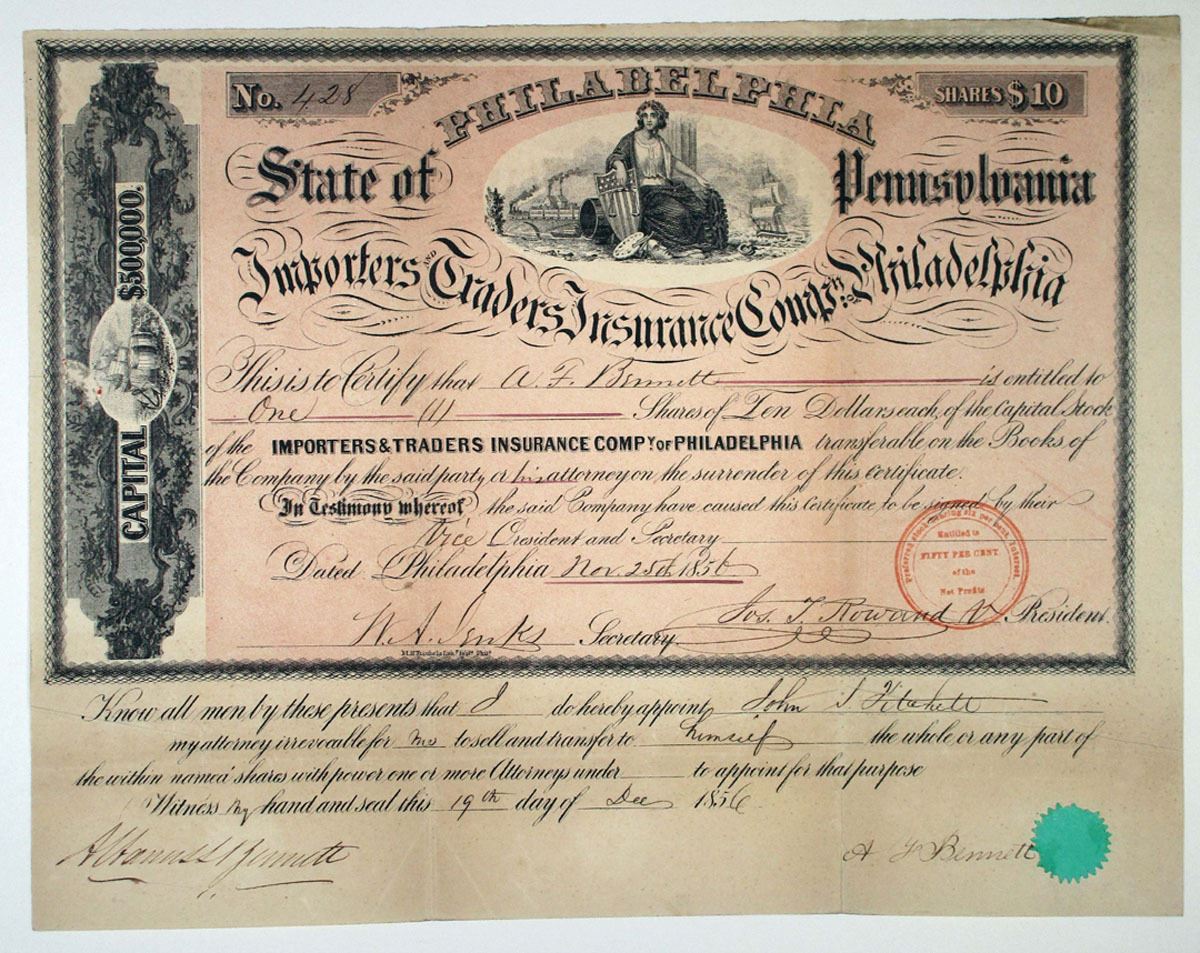 No. 428
PHILADELPHIA
SHARES $10
State of
Pennsylvania
Importers AND Traders Insurance Compy. of Philadelphia
CAPITAL $500,000.
This is to Certify that A. F. Bennett is entitled to
One (1) Shares of Ten Dollars each, of the Capital Stock
of the IMPORTERS & TRADERS INSURANCE COMPY. OF PHILADELPHIA transferable on the Books of
the Company by the said party or his attorney on the surrender of this Certificate.
In Testimony whereof the said Company have caused this Certificate to be signed by their
Vice President and Secretary
Dated Philadelphia Nov. 25th 1856
Preferred stock bearing six per cent Interest.
Entitled to
FIFTY PER CENT.
of the
Net Profits
W. A. Jenks Secretary
Jos. T. Rowand V President.
Know all men by these presents that I do hereby appoint John S
my attorney irrevocable for me to sell and transfer to himself the whole or any part of
the within named shares with power one or more Attorneys under to appoint for that purpose
Witness my hand and seal this 19th day of Dec 1856
Bennett
A F Bennett